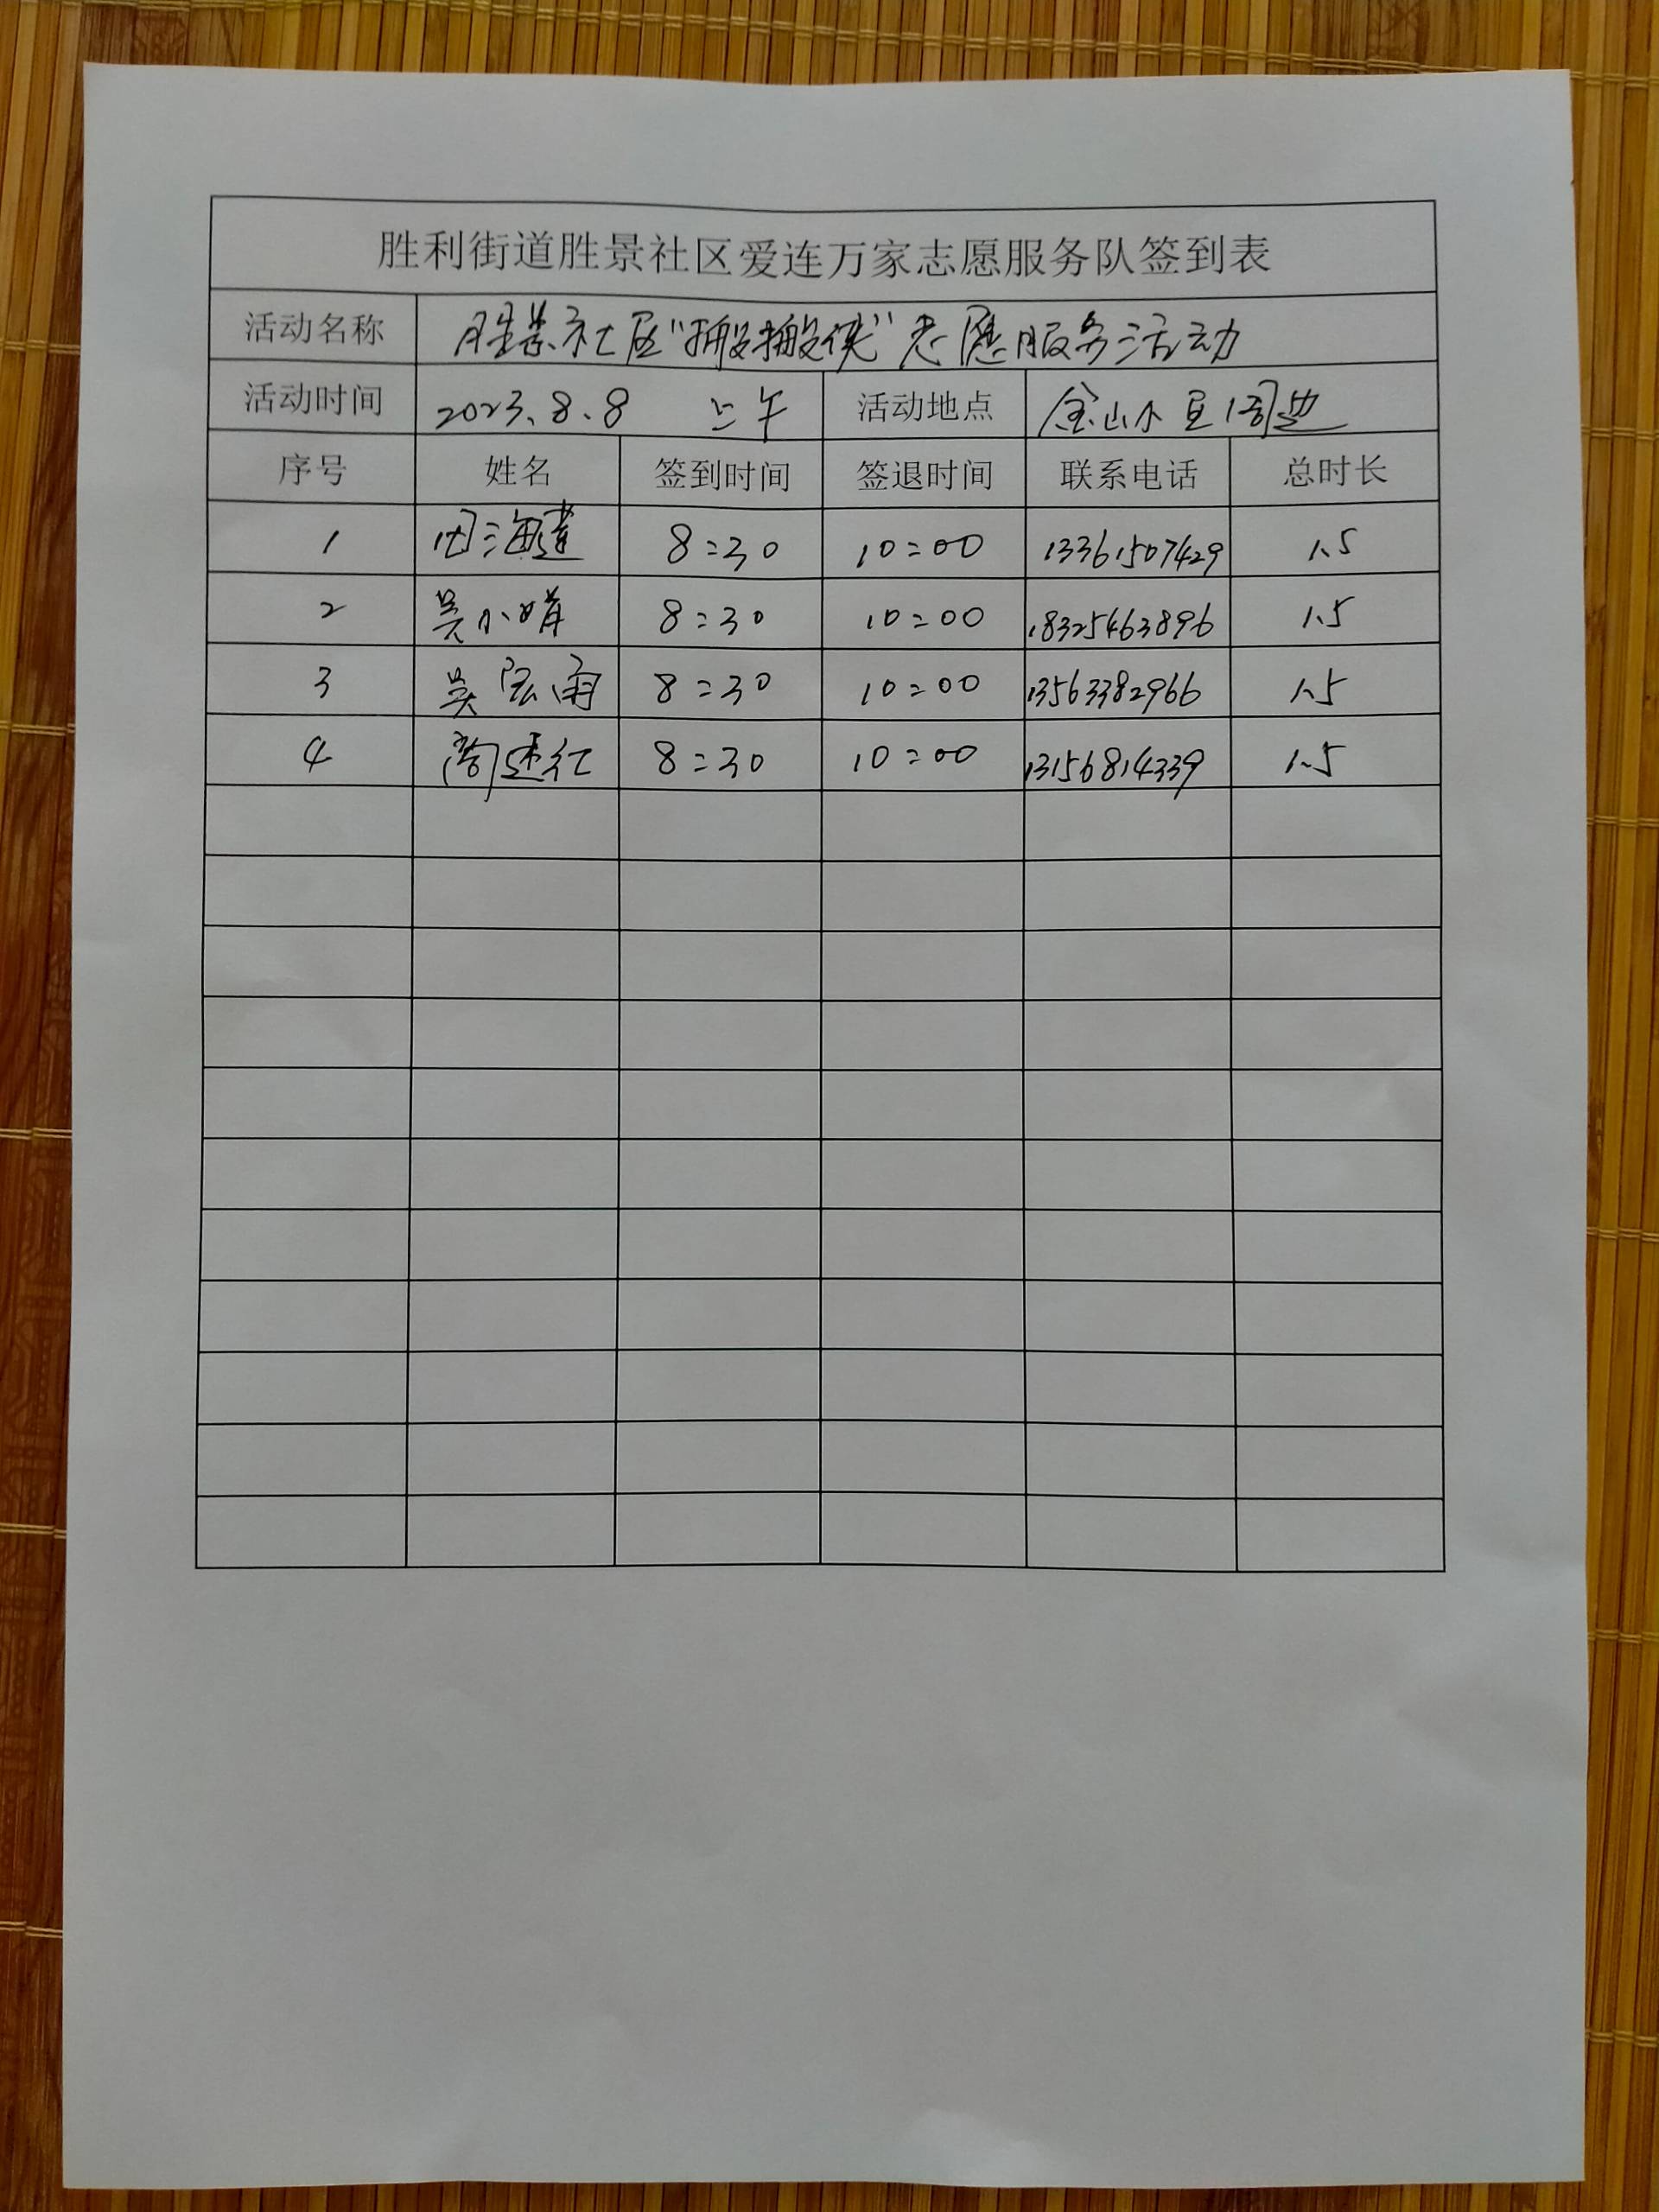 胜利街道胜景社区爱连万家志愿服务队签到表
活动名称 胜景社区“搬搬侠”志愿服务活动
活动时间 2023.8.8 上午 活动地点 金山小区周边
序号 姓名 签到时间 签退时间 联系电话 总时长
1 田海莲 8:30 10:00 13361507429 1.5
2 吴小娟 8:30 10:00 18325463896 1.5
3 吴宏雨 8:30 10:00 13563382966 1.5
4 8:30 10:00 13156814339 1.5